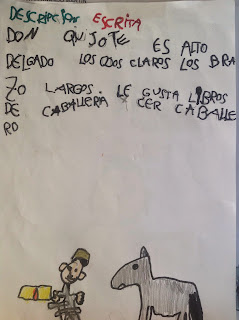 DESCRIPCION ESCRITA
DON QUIJOTE ES ALTO
DELGADO LOS OJOS CLAROS LOS BRA
ZO LARGOS. LE GUSTA LIBROS
DE CABALLERA Y CER CABALLE
RO